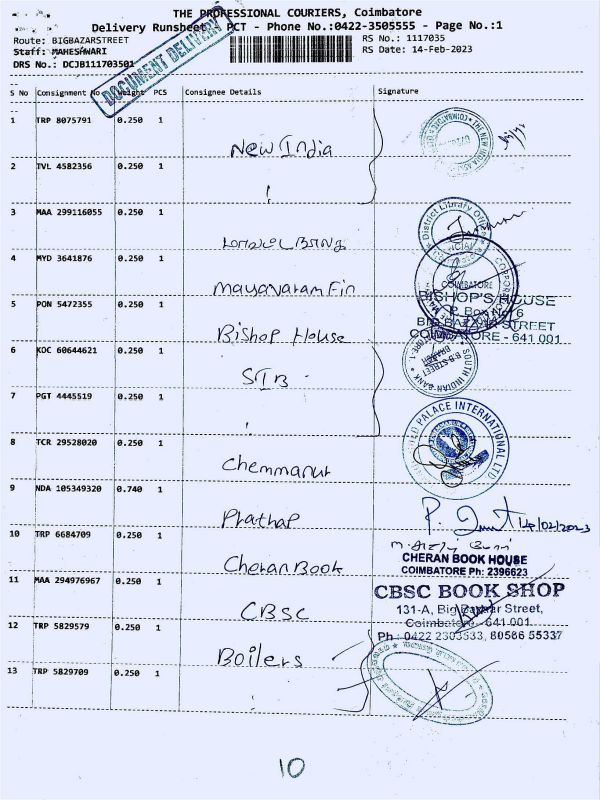 THE PROFESSIONAL COURIERS, Coimbatore
Delivery Runsheet PCT - Phone No.:0422-3505555 - Page No.:1
Route: BIGBAZARSTREET RS No.: 1117035
Staff: MAHESHWARI RS Date: 14-Feb-2023
DRS No.: DCJB111703501
DOCUMENT DELIVERY
S No Consignment No Weight PCS Consignee Details Signature
1 TRP 8075791 0.250 1
New India
2 TVL 4582356 0.250 1
3 MAA 299116055 0.250 1
District Library Offic
4 MYD 3641876 0.250 1
Mayavaram Fin
COIMBATORE
BISHOP'S HOUSE
5 PON 5472355 0.250 1
P. Box No. 6
BIG BAZAAR STREET
Bishop House
COIMBATORE - 641 001
6 KOC 60644621 0.250 1
SIB
SOUTH INDIAN BANK
B.B. STREET
BRANCH
7 PGT 4445519 0.250 1
PALACE INTERNATIONAL LTD
8 TCR 29528020 0.250 1
Chemmanur
9 NDA 105349320 0.740 1
Prathap
14/02/2023
10 TRP 6684709 0.250 1
CHERAN BOOK HOUSE
Cheran Book
COIMBATORE Ph: 2396623
11 MAA 294976967 0.250 1
CBSC BOOK SHOP
131-A, Big Bazaar Street,
CBSC
Coimbatore - 641 001
12 TRP 5829579 0.250 1
Ph : 0422 2303533, 80566 55337
Boilers
13 TRP 5829709 0.250 1
10